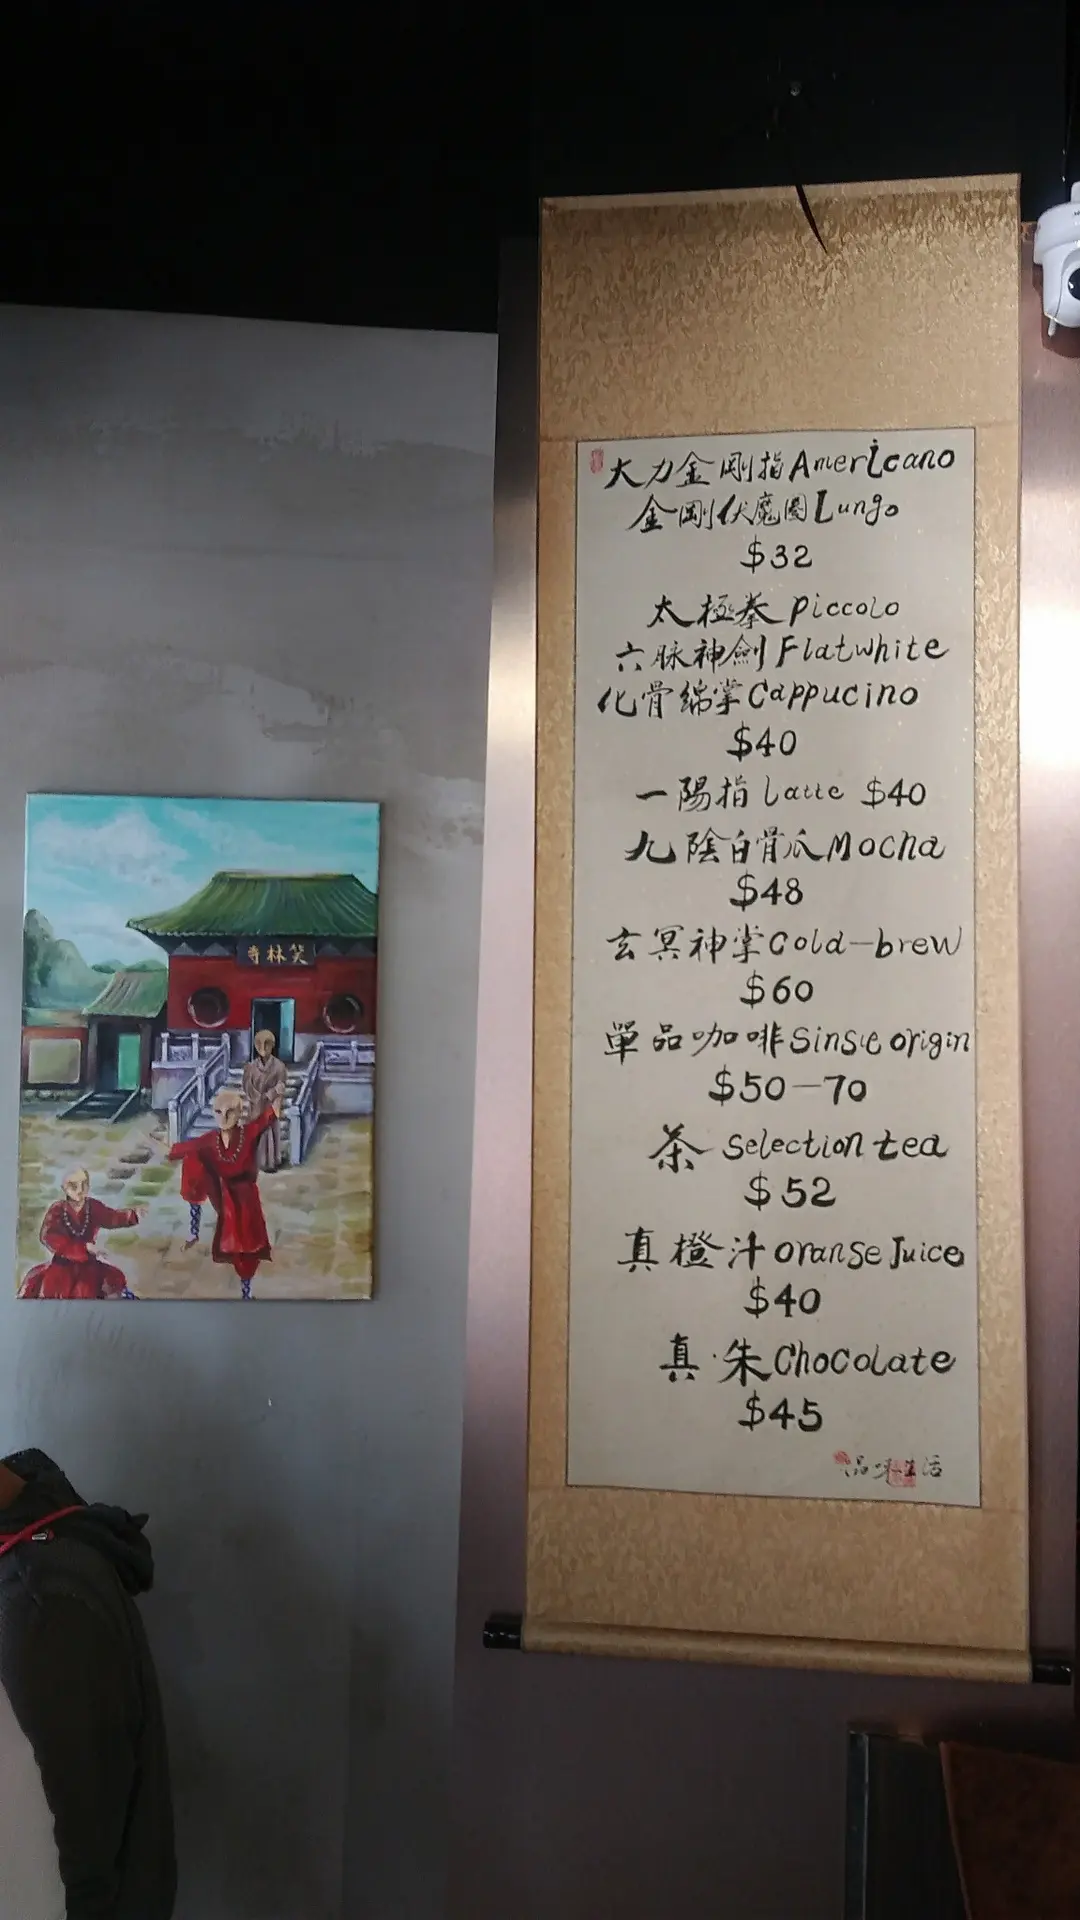 大力金剛指Americano
金剛伏魔圈Lungo
$32
太極拳 piccolo
六脉神劍 Flatwhite
化骨綿掌Cappucino
$40
一陽指 Latte $40
九陰白骨爪Mocha
$48
玄冥神掌Cold-brew
$60
單品咖啡Single origin
$50-70
茶 Selection tea
$52
真橙汁 orange Juice
$40
真·朱Chocolate
$45
品味生活
寺林笑